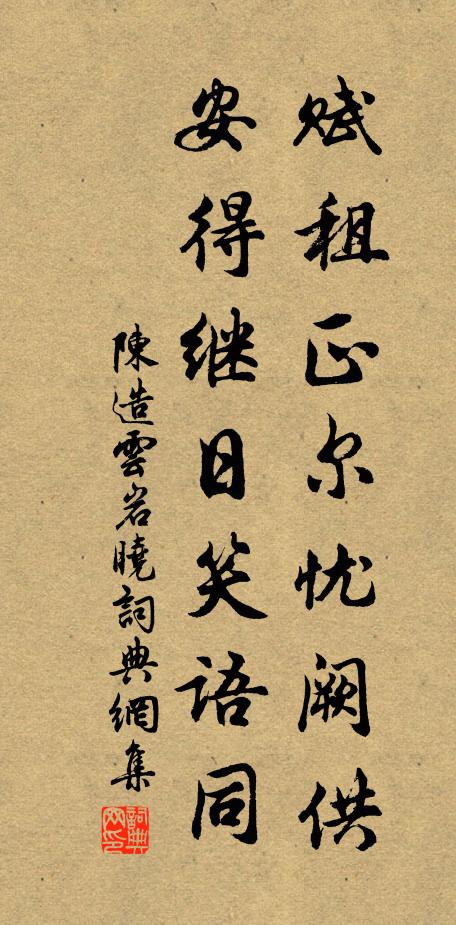 赋租正尔忧阙供
安得继日笑语同
陳造雲岩曉詞典網集
詞典网印